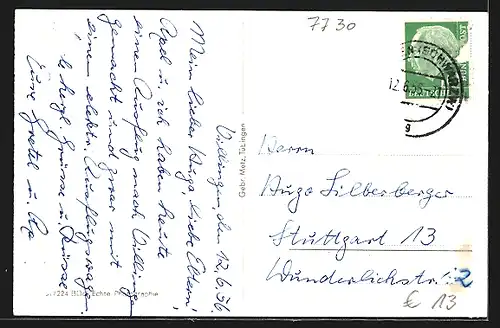 7730
Villingen den 12.6.56.
Mein lieber Hugo, liebe Eltern!
Rael u. ich haben heute
einen Ausflug nach Villingen
gemacht und zwar mit
einem elektr. Ausflugswagen.
Grüsse u. Küsse
Eure Gretel u.
Gebr. Metz, Tübingen
Echte Photographie
DEUTSCHE BUNDESPOST
12.6.56
Herrn
Hugo Silberberger
Stuttgart 13
Wunderlichstr. 2
13